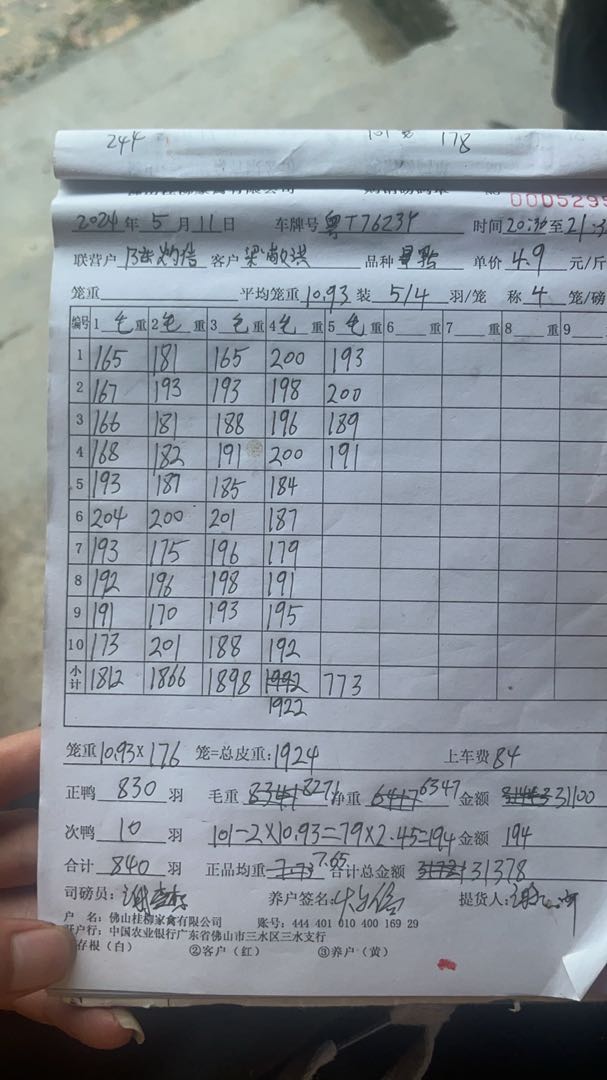 244 178
0005299
2024年5月11日 车牌号粤T76234 时间20:30至21:3
联营户 客户梁 品种 单价4.9元/斤
笼重 平均笼重10.93装5/4羽/笼 称4笼/磅
编号 1毛重 2毛重 3毛重 4毛重 5毛重 6 重 7 重 8 重 9
1 165 181 165 200 193
2 167 193 193 198 200
3 166 181 188 196 189
4 168 182 191 200 191
5 193 187 185 184
6 204 200 201 187
7 193 175 196 179
8 192 196 198 191
9 191 170 193 195
10 173 201 188 192
小计 1812 1866 1898 1992 773
1922
笼重10.93×176 笼=总皮重:1924 上车费84
正鸭830羽 毛重8271净重6347金额31100
次鸭10羽 101-2×10.93=79×2.45=194金额194
合计840羽 正品均重7.65合计总金额31378
司磅员: 养户签名: 提货人:
户 名:佛山桂柳家禽有限公司 账号:444 401 010 400 169 29
开户行:中国农业银行广东省佛山市三水区三水支行
存根(白) ②客户(红) ③养户(黄)